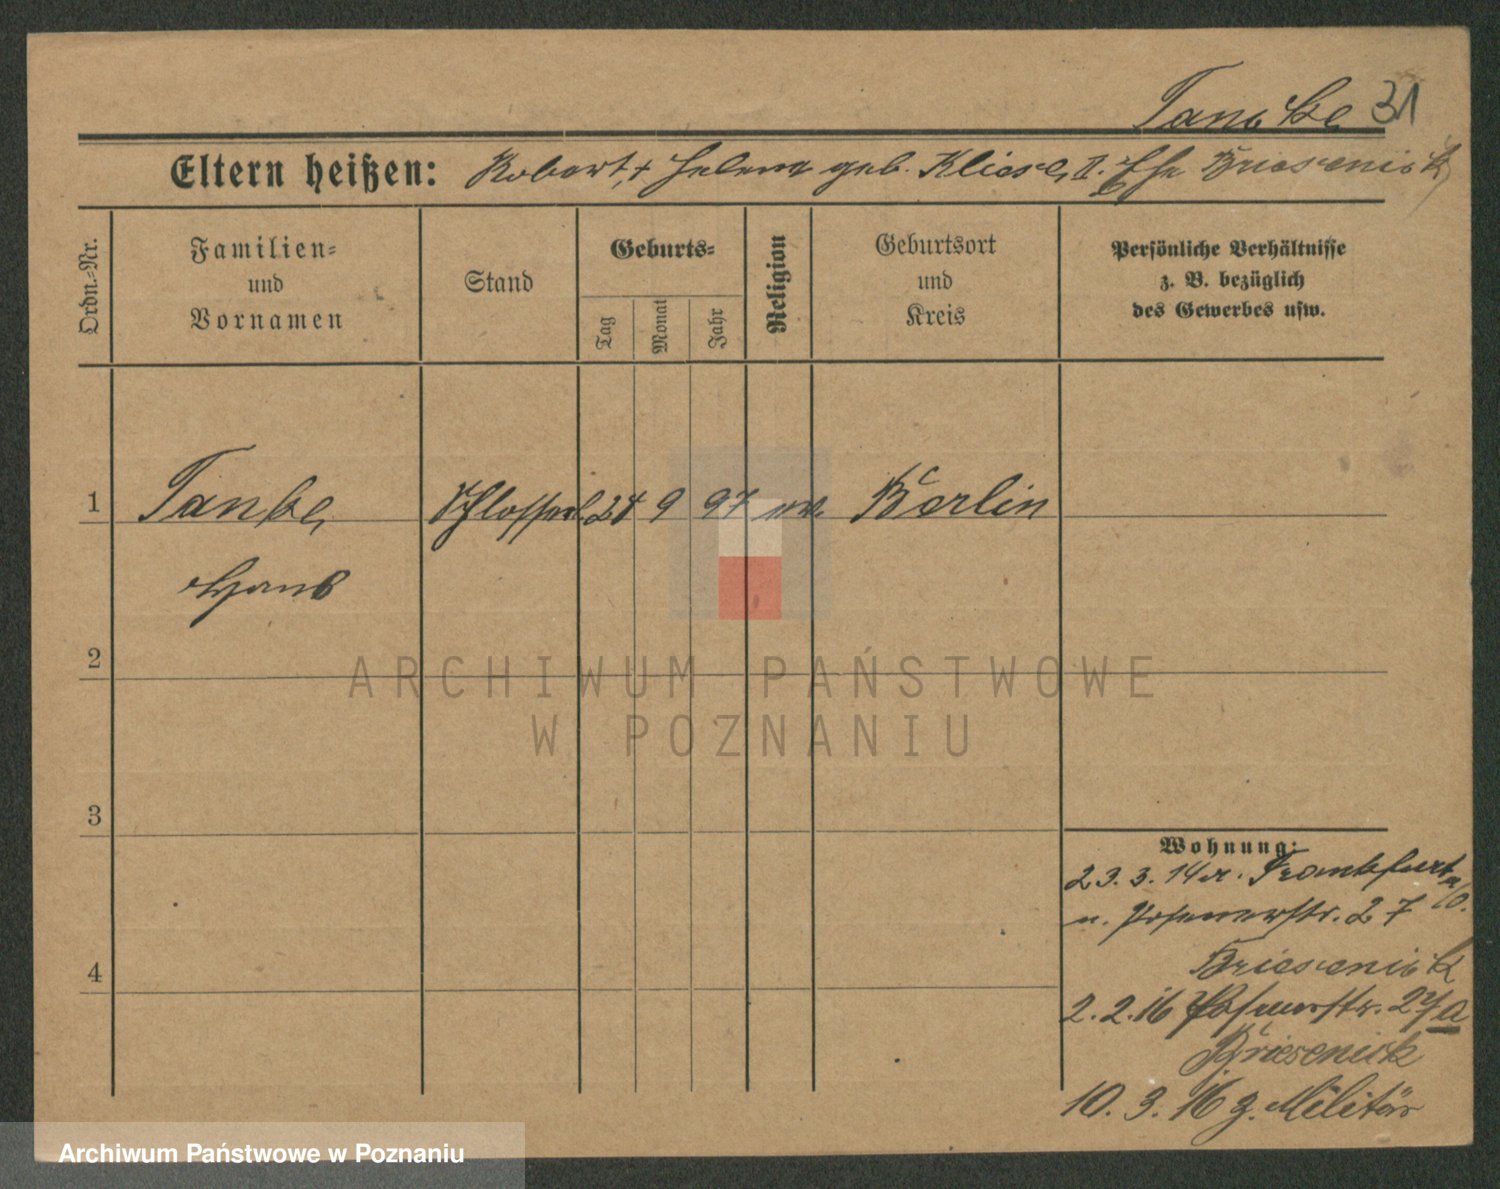 Taubke 31
Eltern heißen: Robert, + Helene geb. Kliese, II. Ehe Briesenick
Ordn.-Nr.
Familien-
und
Vornamen
Stand
Geburts-
Tag
Monat
Jahr
Religion
Geburtsort
und
Kreis
Persönliche Verhältnisse
z. B. bezüglich
des Gewerbes usw.
1 Taube, Schlosserl. 24 9 97 ev. Berlin
Hans
2
3
4
Wohnung:
23.3.14 v. Frankfurt a/O.
n. Posenerstr. 27
Briesenick
2.2.16 Posenerstr. 27a
Briesenick
10.3.16 z. Militär
ARCHIWUM PAŃSTWOWE
W POZNANIU
Archiwum Państwowe w Poznaniu